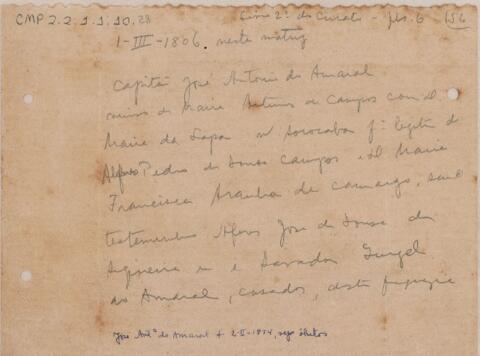 CMP 2.2.1.1.10.28
Livro 2º de Casatº - fls. 6 156
1-III-1806. neste matriz
Capitão José Antonio do Amaral
viuvo de Maria Antunes de Campos com D.
Maria da Lapa nl Sorocaba fª legitª de
Alferes Pedro de Sousa Campos e D. Maria
Francisca Aranha de Camargo, sendo
testemunhas Alferes José de Sousa de
Siqueira e Salvador Gurgel
do Amaral, casados, desta freguezia
José Antº do Amaral + 2-II-1854, vejo óbitos